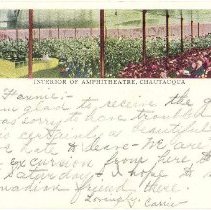 INTERIOR OF AMPHITHEATRE, CHAUTAUQUA
Fannie,
glad to receive the
sorry to have troubled
is certainly a beautiful
to leave. We are
excursion from here to
Saturday - I hope to
friend there.
Lovingly,
Carrie